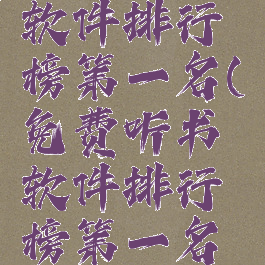 软件排行
榜第一名(
免费听书
软件排行
榜第一名